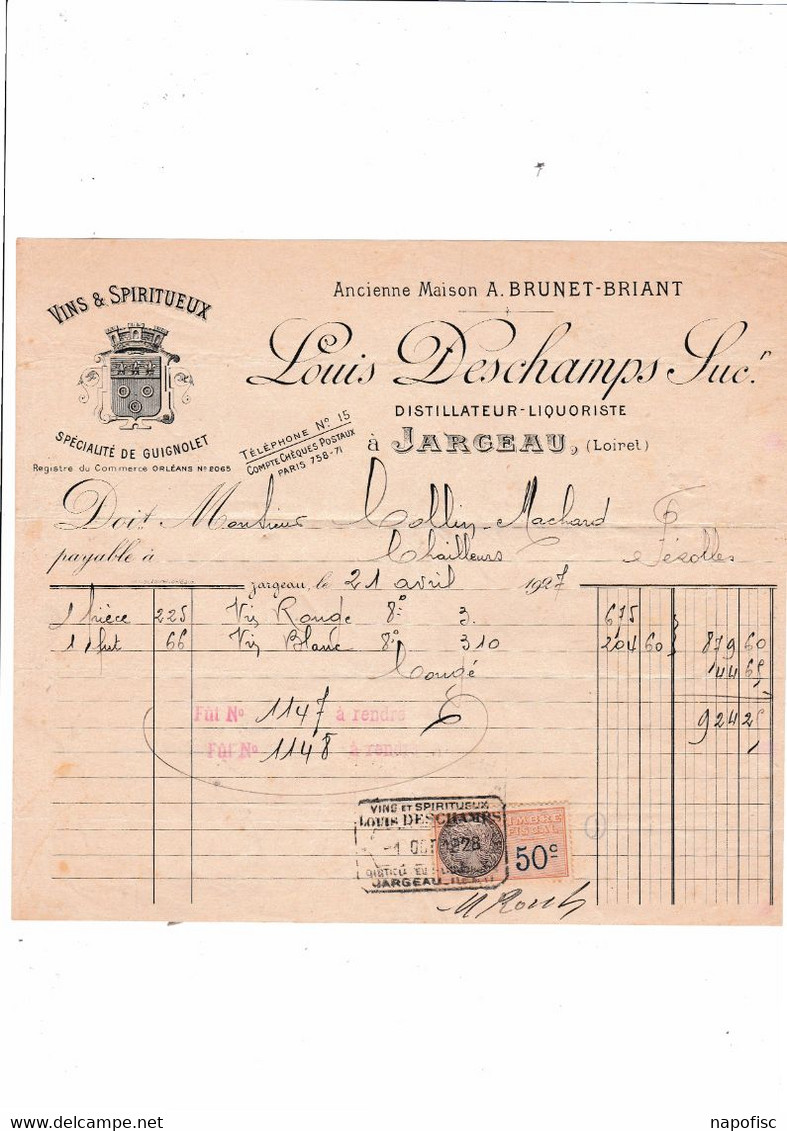 Ancienne Maison A. BRUNET-BRIANT
VINS & SPIRITUEUX
Louis Deschamps Sucr.
DISTILLATEUR-LIQUORISTE
à JARGEAU, (Loiret)
SPÉCIALITÉ DE GUIGNOLET
Registre du Commerce ORLÉANS No 2065
TÉLÉPHONE No 15
COMPTE CHÈQUES POSTAUX
PARIS 758-71
Doit Monsieur Collin-Machard
payable à Chailleurs Férolles
Jargeau, le 21 avril 1927
1 pièce 225 Vin Rouge 8° 3. 675
1 fut 66 Vin Blanc 8° 310 204 60 879 60
Congé 44 65
Fût No 1147 à rendre 924 25
Fût No 1148 à rendre
VINS ET SPIRITUEUX
LOUIS DESCHAMPS
-1 OCT 1928
JARGEAU
TIMBRE
FISCAL
50c
napofisc